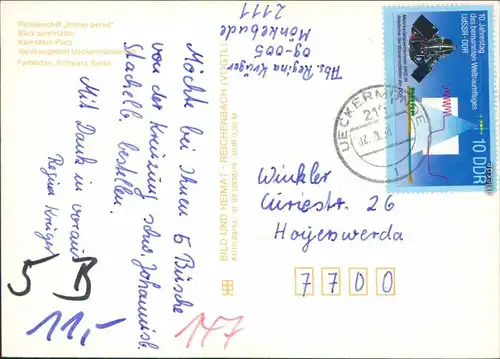 Pionierschiff „Immer bereit"
Blick zum Hafen
Karl-Marx-Platz
Neubaugebiet Ueckermünde
Farbfotos: Schwarz, Berlin
Abs. Regina Krüger
09-005
Mönkebude
2111
Möchte bei Ihnen 5 Büsche
von der Kreuzung schw. Johannisb.
Stachelb. bestellen.
Mit Dank im voraus
Regina Krüger
BILD UND HEIMAT · REICHENBACH (VOGTL)
10. Jahrestag
des bemannten Weltraumfluges
UdSSR-DDR
10 DDR
UECKERMÜNDE
Winkler
Curiestr. 26
Hoyerswerda
7700
5 B
11,-
147